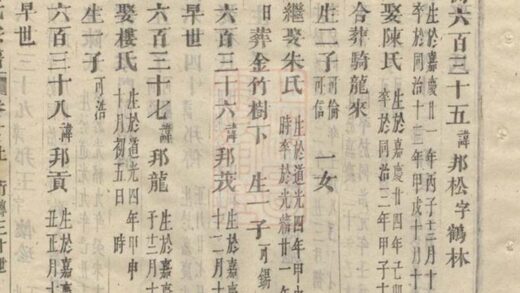 六百三十五 諱邦松字鶴林
生於嘉慶廿一年丙子三月十
卒於同治十三年甲戌十月十
娶陳氏 生於嘉慶廿四年己卯
卒於同治三年甲子十
合葬騎龍來
生二子 可倫 可信 一女
繼娶朱氏 生於道光四年甲申
時卒於光緒廿一年
日葬金竹樹下 生一子 可錫
六百三十六 諱邦茂 生於嘉慶
十二月十
早世
六百三十七 諱邦龍 生於嘉慶
于十二月十
娶樓氏 生於道光四年甲申
十月初五日 時
生一子 可浩
六百三十八 諱邦貢 生於嘉慶
丑正月十
早世